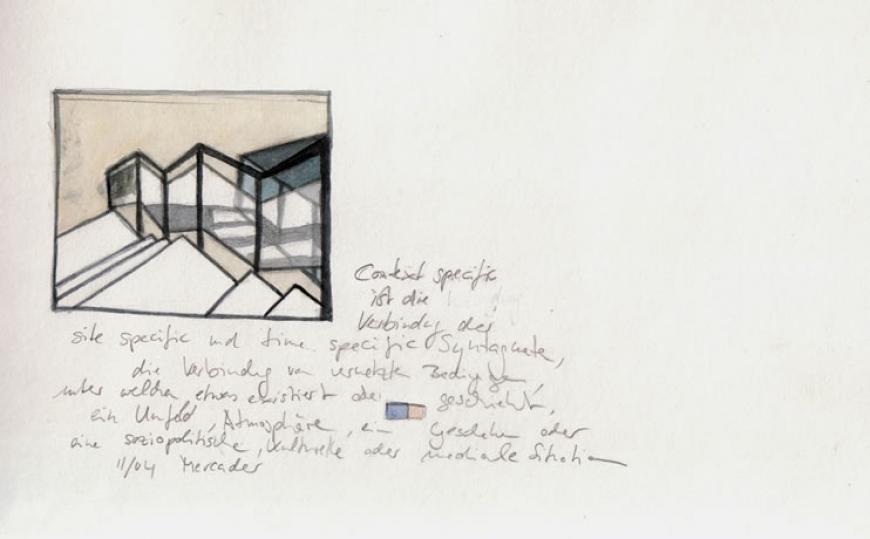 Context specific
ist die
Verbindung der
site specific und time specific Syntagmata,
die Verbindung von vernetzten Bedingungen,
unter welchen etwas existiert oder geschieht,
ein Umfeld, Atmosphäre, ein Geschehen oder
eine soziopolitische, kulturelle oder mediale Situation
11/04 Mercader